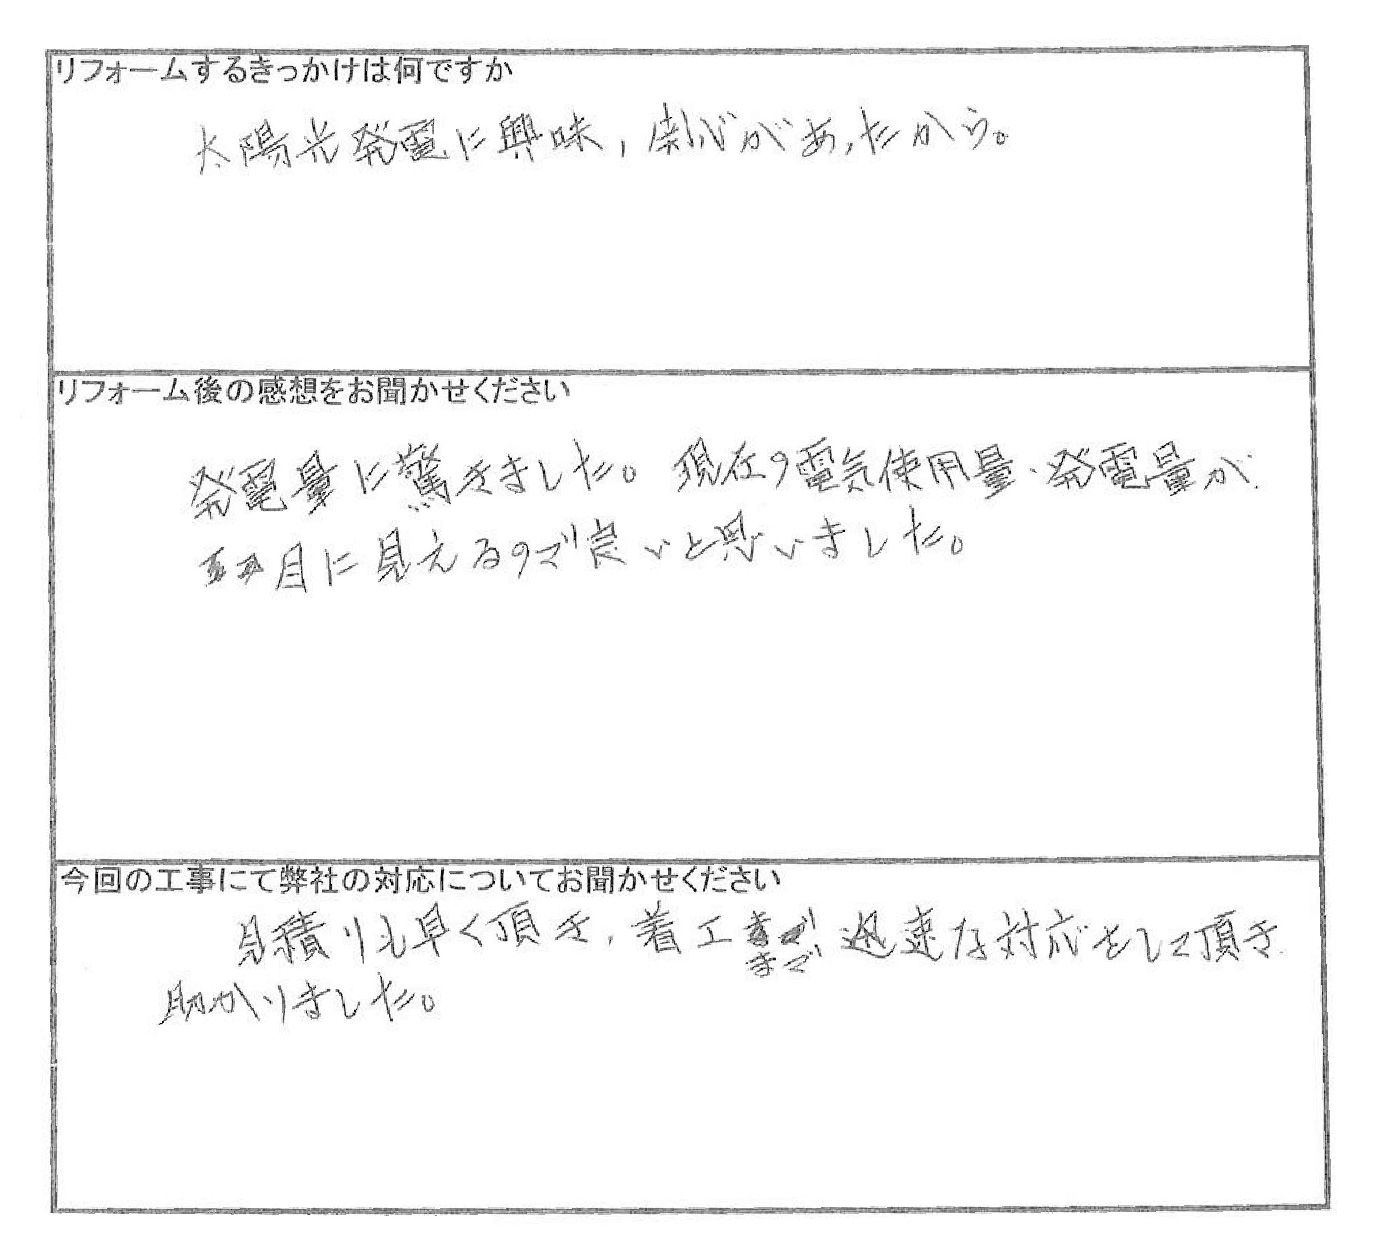 リフォームするきっかけは何ですか
太陽光発電に興味,関心があったから。
リフォーム後の感想をお聞かせください
発電量に驚きました。現在の電気使用量・発電量が
目に見えるので良いと思いました。
今回の工事にて弊社の対応についてお聞かせください
見積りも早く頂き、着工まで迅速な対応をして頂き
助かりました。